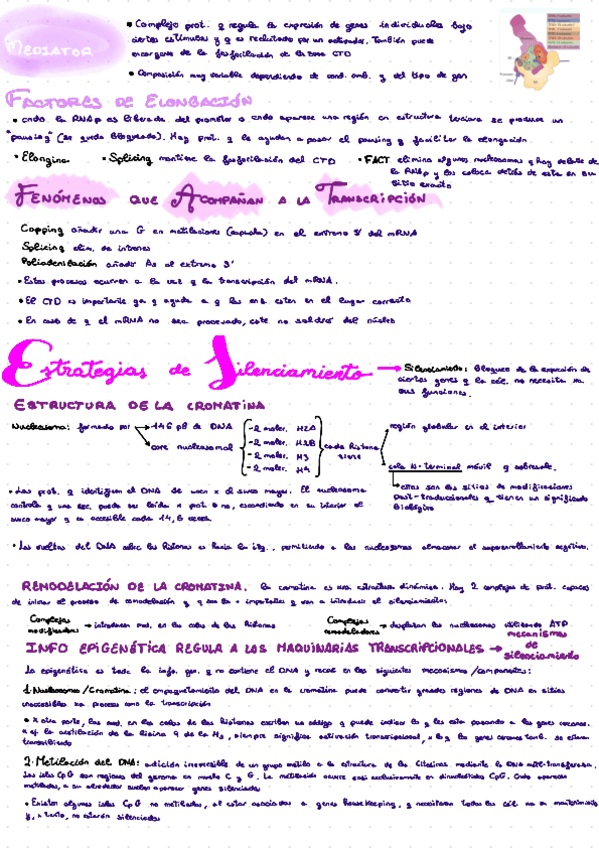 • Complejo prot. q regula la expresión de genes individuales bajo
MEDIATOR
ciertos estímulos y q es reclutado por un activador. También puede
encargarse de la fosforilación de la CTD
• Composición muy variable dependiendo de cond. amb. y del tipo de gen
FACTORES DE ELONGACIÓN
• cndo la RNAp es liberada del promotor o cndo aparece una región en estructura terciaria se produce un
"pausing" (se queda bloqueada). Hay prot. q le ayudan a pasar el pausing y facilitar la elongación
• Elongina • Splicing mantiene la fosforilación del CTD • FACT elimina algunos nucleosomas q hay delante de
la RNAp y los coloca detrás de esta en su
sitio exacto
FENÓMENOS QUE ACOMPAÑAN A LA TRANSCRIPCIÓN
Capping añadir una G en metilaciones (capucha) en el extremo 5' del mRNA
Splicing elim. de intrones
Poliadenilación añadir As al extremo 3'
• Estos procesos ocurren a la vez q la transcripción del mRNA.
• El CTD es importante ya q ayuda a q las enz. esten en el lugar correcto
• En caso de q el mRNA no sea procesado, este no saldrá del núcleo
Estrategias de Silenciamiento → Silenciamiento: Bloqueo de la expresión de
ciertos genes q la cél. no necesita xa
sus funciones.
ESTRUCTURA DE LA CROMATINA
Nucleosoma: formado por → 146 pB de DNA
core nucleosomal
- 2 molec. H2A
- 2 molec. H2B
- 2 molec. H3
- 2 molec. H4
cada histona tiene
región globular en el interior
cola N-terminal móvil y sobresale.
estas son los sitios de modificaciones
post-traduccionales q tienen un significado
Biológico
• Las prot. q identifican el DNA se unen x el surco mayor. El nucleosoma
controla q una sec. pueda ser leída x prot. o no, escondiendo en su interior el
surco mayor q es accesible cada
• Las vueltas del DNA sobre las histonas es hacia la izq., permitiendo a los nucleosomas almacenar el superenrollamiento negativo.
REMODELACIÓN DE LA CROMATINA. La cromatina es una estructura dinámica. Hay 2 complejos de prot. capaces
de iniciar el proceso de remodelación y q son los + importantes q van a introducir el silenciamiento:
Complejos modificadores → introducen mod. en las colas de las histonas
Complejos remodeladores → desplazan los nucleosomas utilizando ATP
INFO EPIGENÉTICA REGULA A LAS MAQUINARIAS TRANSCRIPCIONALES → mecanismos
de
silenciamiento
La epigenética es toda la info. gen. q no contiene el DNA y recae en los siguientes mecanismos/componentes:
1. Nucleosomas/Cromatina: el empaquetamiento del DNA en la cromatina puede convertir grandes regiones de DNA en sitios
inaccesibles xa procesos como la transcripción
• X otra parte, las mod. en las colas de las histonas escriben un código q puede indicar lo q les esta pasando a los genes cercanos.
x ej la acetilación de la lisina 9 de la H3, siempre significa activación transcripcional, x lo q los genes cercanos
transcribiendo
2. Metilación del DNA: adición irreversible de un grupo metilo a la estructura de las citosinas mediante la DNA metil-transferasa.
Las islas CpG son regiones del genoma en mucha C y G. La metilación ocurre casi exclusivamente en dinucleótidos CpG. Cndo aparecen
metiladas, a su alrededor suelen aparecer genes silenciados
• Existen algunas islas CpG no metiladas, al estar asociadas a genes housekeeping, q necesitan todas las cél. xa su mantenimiento
y, x tanto, no estarán silenciados